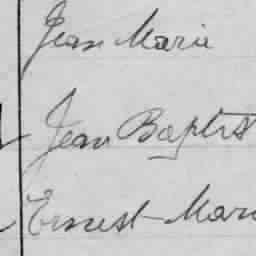 Jean Marie
Jean Baptist
Ernest Mari